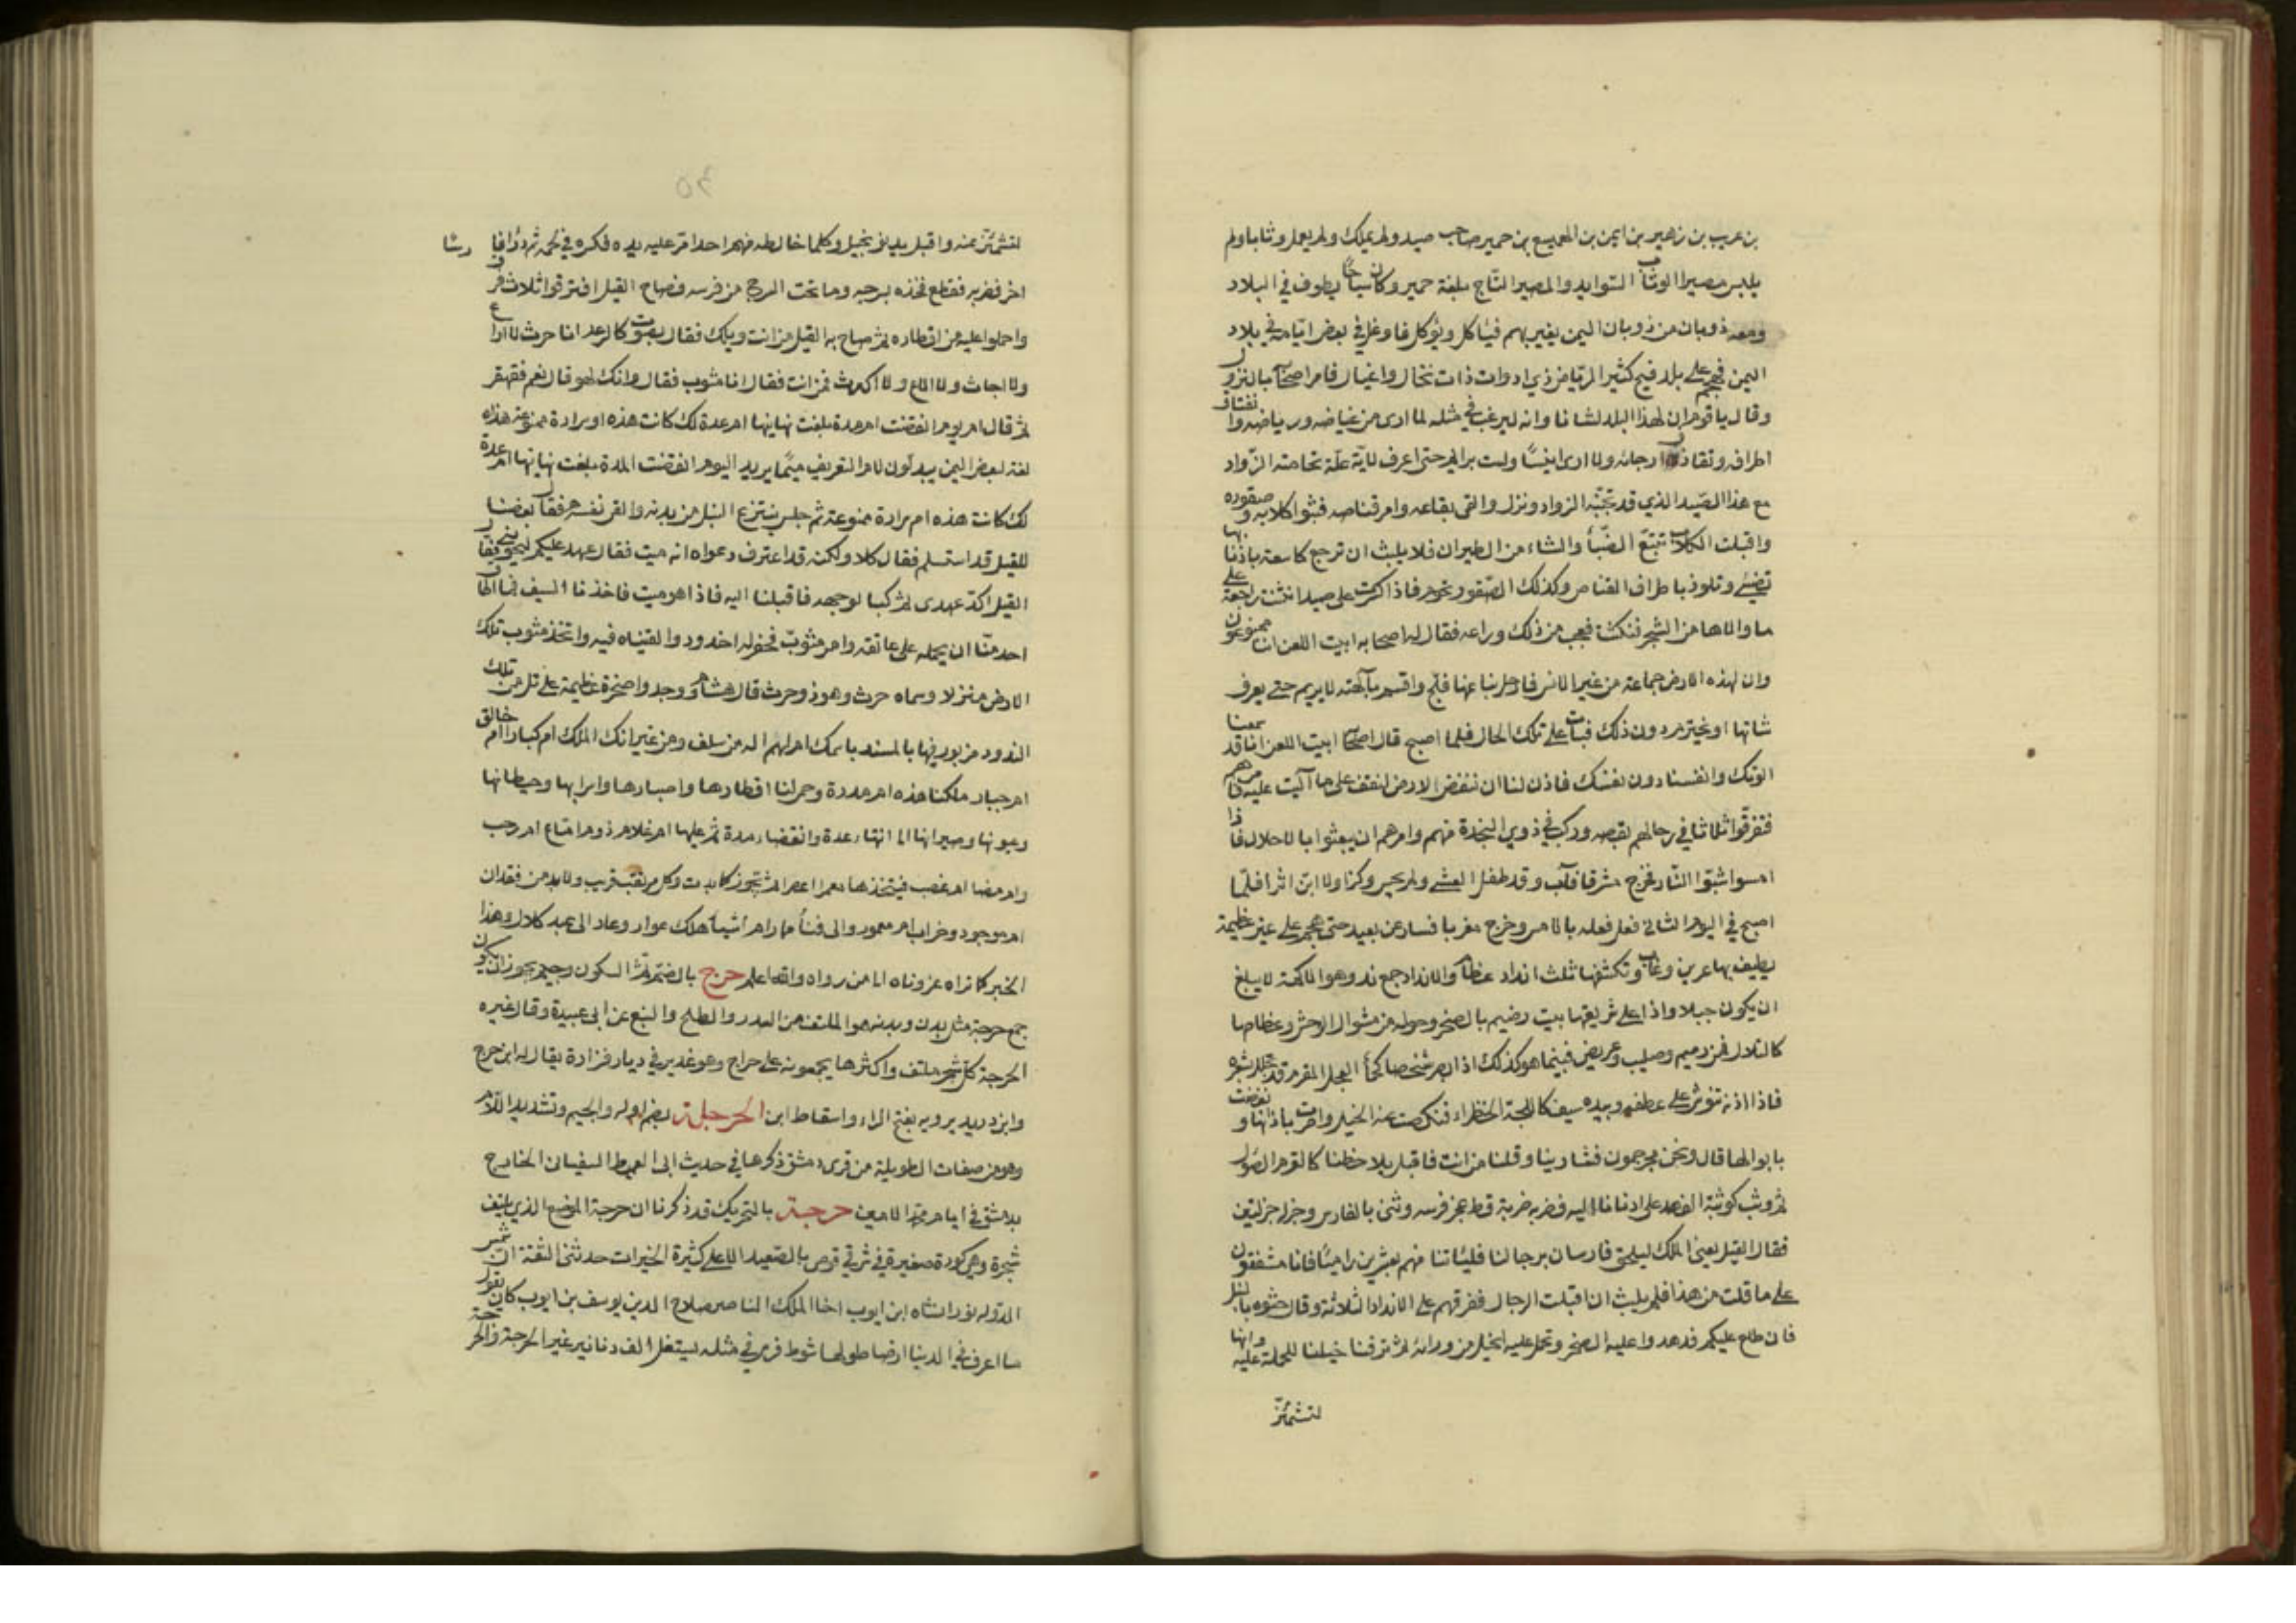 بن عريب بن زهير بن ايمن بن الهميسع بن حمير صاحب صيد ولم يملك ولم يعل وثابا ولم
يلبس مصيرا الوثاب السرير والمصير التاج بلغة حمير وكان سياحا يطوف في البلاد
ومعه ذوبان من ذوبان اليمن يغير بهم فيأكل ويؤكل فاوغل في بعض ايامه في بلاد
اليمن فهجم على بلد فيح كثير الرياض ذي ادوات ذات نخل واغيال فامر اصحابه بالنزول
وقال يا قوم ان لهذا البلد لشانا وانه ليرغب في مثله لما ارى من غياضه ورياضه وانفتاق
اطرافه وتقاذف ارجائه ولا ارى انيسا ولست برائم حتى اعرف لاية علة تحامته الرواد
مع هذا الصيد الذي قد تجنبه الرواد ونزل والقى بقاعه وامر قناصه فبثوا كلابه وصقوره
واقبلت الكلاب تتبع الظبا والشاء من الطيران فلا يلبث ان ترجع كاسعة باذنابها
تضئ وتلوذ باطراف القناص وكذلك الصقور تحوم فاذا كرت على صيد انثنت راجعة على
ما والاها من الشجر فنكثت فعجب من ذلك وراعه فقال له اصحابه ابيت اللعن اننا ممنوعون
وان لهذه الارض جماعة من غير الانس فارحل بنا عنها فلج واقسم بآلهته لا يريم حتى يعرف
شانها او يخترم دون ذلك فبات على تلك الحال فلما اصبح قال اصحابه ابيت اللعن انا قد سمعنا
الوتك وانفسنا دون نفسك فاذن لنا ان ننفض الارض لنقف على ما آليت عليه فامرهم
فتفرقوا ثلاثا في رجالهم بقصه وركب في ذوي النجدة منهم وامرهم ان يبعثوا بالاحلال فاذا
امسوا شبوا النار فخرج مشرقا فآب وقد طفل العشي ولم يحس ركزا ولا ابن اثرا فلما
اصبح في اليوم الثاني فعل فعله بالامس وخرج مغربا فسار غير بعيد حتى هجم على عين عظيمة
يطيف بها عرين وغاب وتكتنفها ثلث انداد عظام والانداد جمع ند وهو الاكمة لا يبلغ
ان يكون جبلا واذا على شريعتها بيت رضيم بالصخر وحوله من مسوك الوحش وعظامها
كالتلال فمن رميم وصليب وغريض فبينما هو كذلك اذ ابصر شخصا كجماء الفحل المقرم قد تجلل بشعره
فاذا اذنه تنوش على عطفه وبيده سيف كاللجة الخضراء فنكصت عنه الخيل وامرت باذنابها ونفضت
بابوالها قال ونحن محرنجمون فنادينا وقلنا من انت فاقبل يلاحظنا كالقرم الصول
ثم وثب كوثبة الفهد على ادنانا اليه فضربه ضربة قط عجز فرسه وثنى بالفارس وجزله جزلتين
فقال القيل يعني الملك ليلحق فارسان برجالنا فليأتنا منهم بعشرين راميا فانا مشفقون
على ما قلت من هذا فلم يلبث ان اقبلت الرجال ففرقهم على الانداد الثلاثة وقال حشوه بالنبل
فان طلع عليكم فدهدوا عليه الصخر وتحمل عليه الخيل من ورائه ثم نزقنا خيلنا للحملة عليه وانها
لتشمئز
٣٥
لتشمئز منه واقبل يدنو ويختل وكلما خالطه سهم احد امر عليه يده فكسره في لحمه ثم دروا فارسا
اخر فضربه فقطع فخذه بسرجه وما تحت السرج من فرسه فصاح القيل افترقوا ثلاث فرق
واحملوا عليه من اقطاره ثم صاح به القيل من انت ويلك فقال بصوت كالرعد انا حرث لا اراع
ولا اجاث ولا الاع ولا اكرث فمن انت فقال انا مثوب فقال وانك لهو قال نعم فقهقر
ثم قال ام يوم انقضت ام مدة بلغت نهايتها ام عدة لك كانت هذه ام سرارة ممنوعة هذه
لغة لبعض اليمن يبدلون لام التعريف ميما يريد اليوم انقضت المدة بلغت نهايتها ام عدة
لك كانت هذه ام سرارة ممنوعة ثم جلس ينتزع النبل من بدنه والقى نفسه فقال بعضنا
للقيل قد استسلم فقال كلا ولكنه قد اعترف دعوه انه ميت فقال عهد عليكم لتحفرنني فقال
القيل اكد عهدى ثم كبا لوجهه فاقبلنا اليه فاذا هو ميت فاخذنا السيف فما اطاق
احد منا ان يحمله على عاتقه وامر مثوب فحفر له اخدود والقيناه فيه واتخذ مثوب تلك
الارض منزلا وسماه حرث وهو ذو حرث قال هشام ووجدوا صخرة عظيمة على تل من تلك
الندود مزبور فيها بالمسند باسمك ام لهم اله من سلف ومن غبر انك الملك ام كبار ام خالق
ام جبار ملكنا هذه ام مدرة وحمى لنا اقطارها واصبارها واسرابها وحيطانها
وعيونها وصيرانها الى انتهاء عدة وانقضاء مدة ثم يظهر عليها ام غلام ذو ام باع ام رحب
وام مضاء ام عضب فيتخذها معمرا اعصرا ثم تجوز كما بدت وكل مرتقب قريب ولا بد من فقدان
ام موجود وخراب ام معمور والى فناء ممار ام اشياء هلك عوار وعاد الى عبد كلال وهذا
الخبر كما تراه عزوناه الى من رواه والله اعلم حرج بالضم ثم السكون وجيم يجوز ان يكون
جمع حرجة مثل بدن وبدنة وهو الملتف من السدر والطلح والنبع عن ابي عبيدة وقال غيره
الحرجة كل شجر ملتف واكثرها يجمعونه على حراج وهو غدير في ديار فزارة يقال له ابن حرج
وابن دريد يرويه بفتح الراء واسقاط ابن الحرجلة بضم اوله والجيم وتشديد اللام
وهو من صفات الطويلة من قرى دمشق ذكرها في حديث ابى العميطر السفيانى الخارج
بدمشق في ايام محمد الامين حرجة بالتحريك قد ذكرنا ان حرجة الموضع الذي يلتف
شجره وهي كورة صغيرة في شرقي قوص بالصعيد الاعلى كثيرة الخيرات حدثني الثقة ان شمس
الدولة نوران شاه ابن ايوب اخا الملك الناصر صلاح الدين يوسف بن ايوب كان يقول
ما اعرف في الدنيا ارضا طولها شوط فرس في مثله يستغل الف دنانير غير الحرجة والحر جة